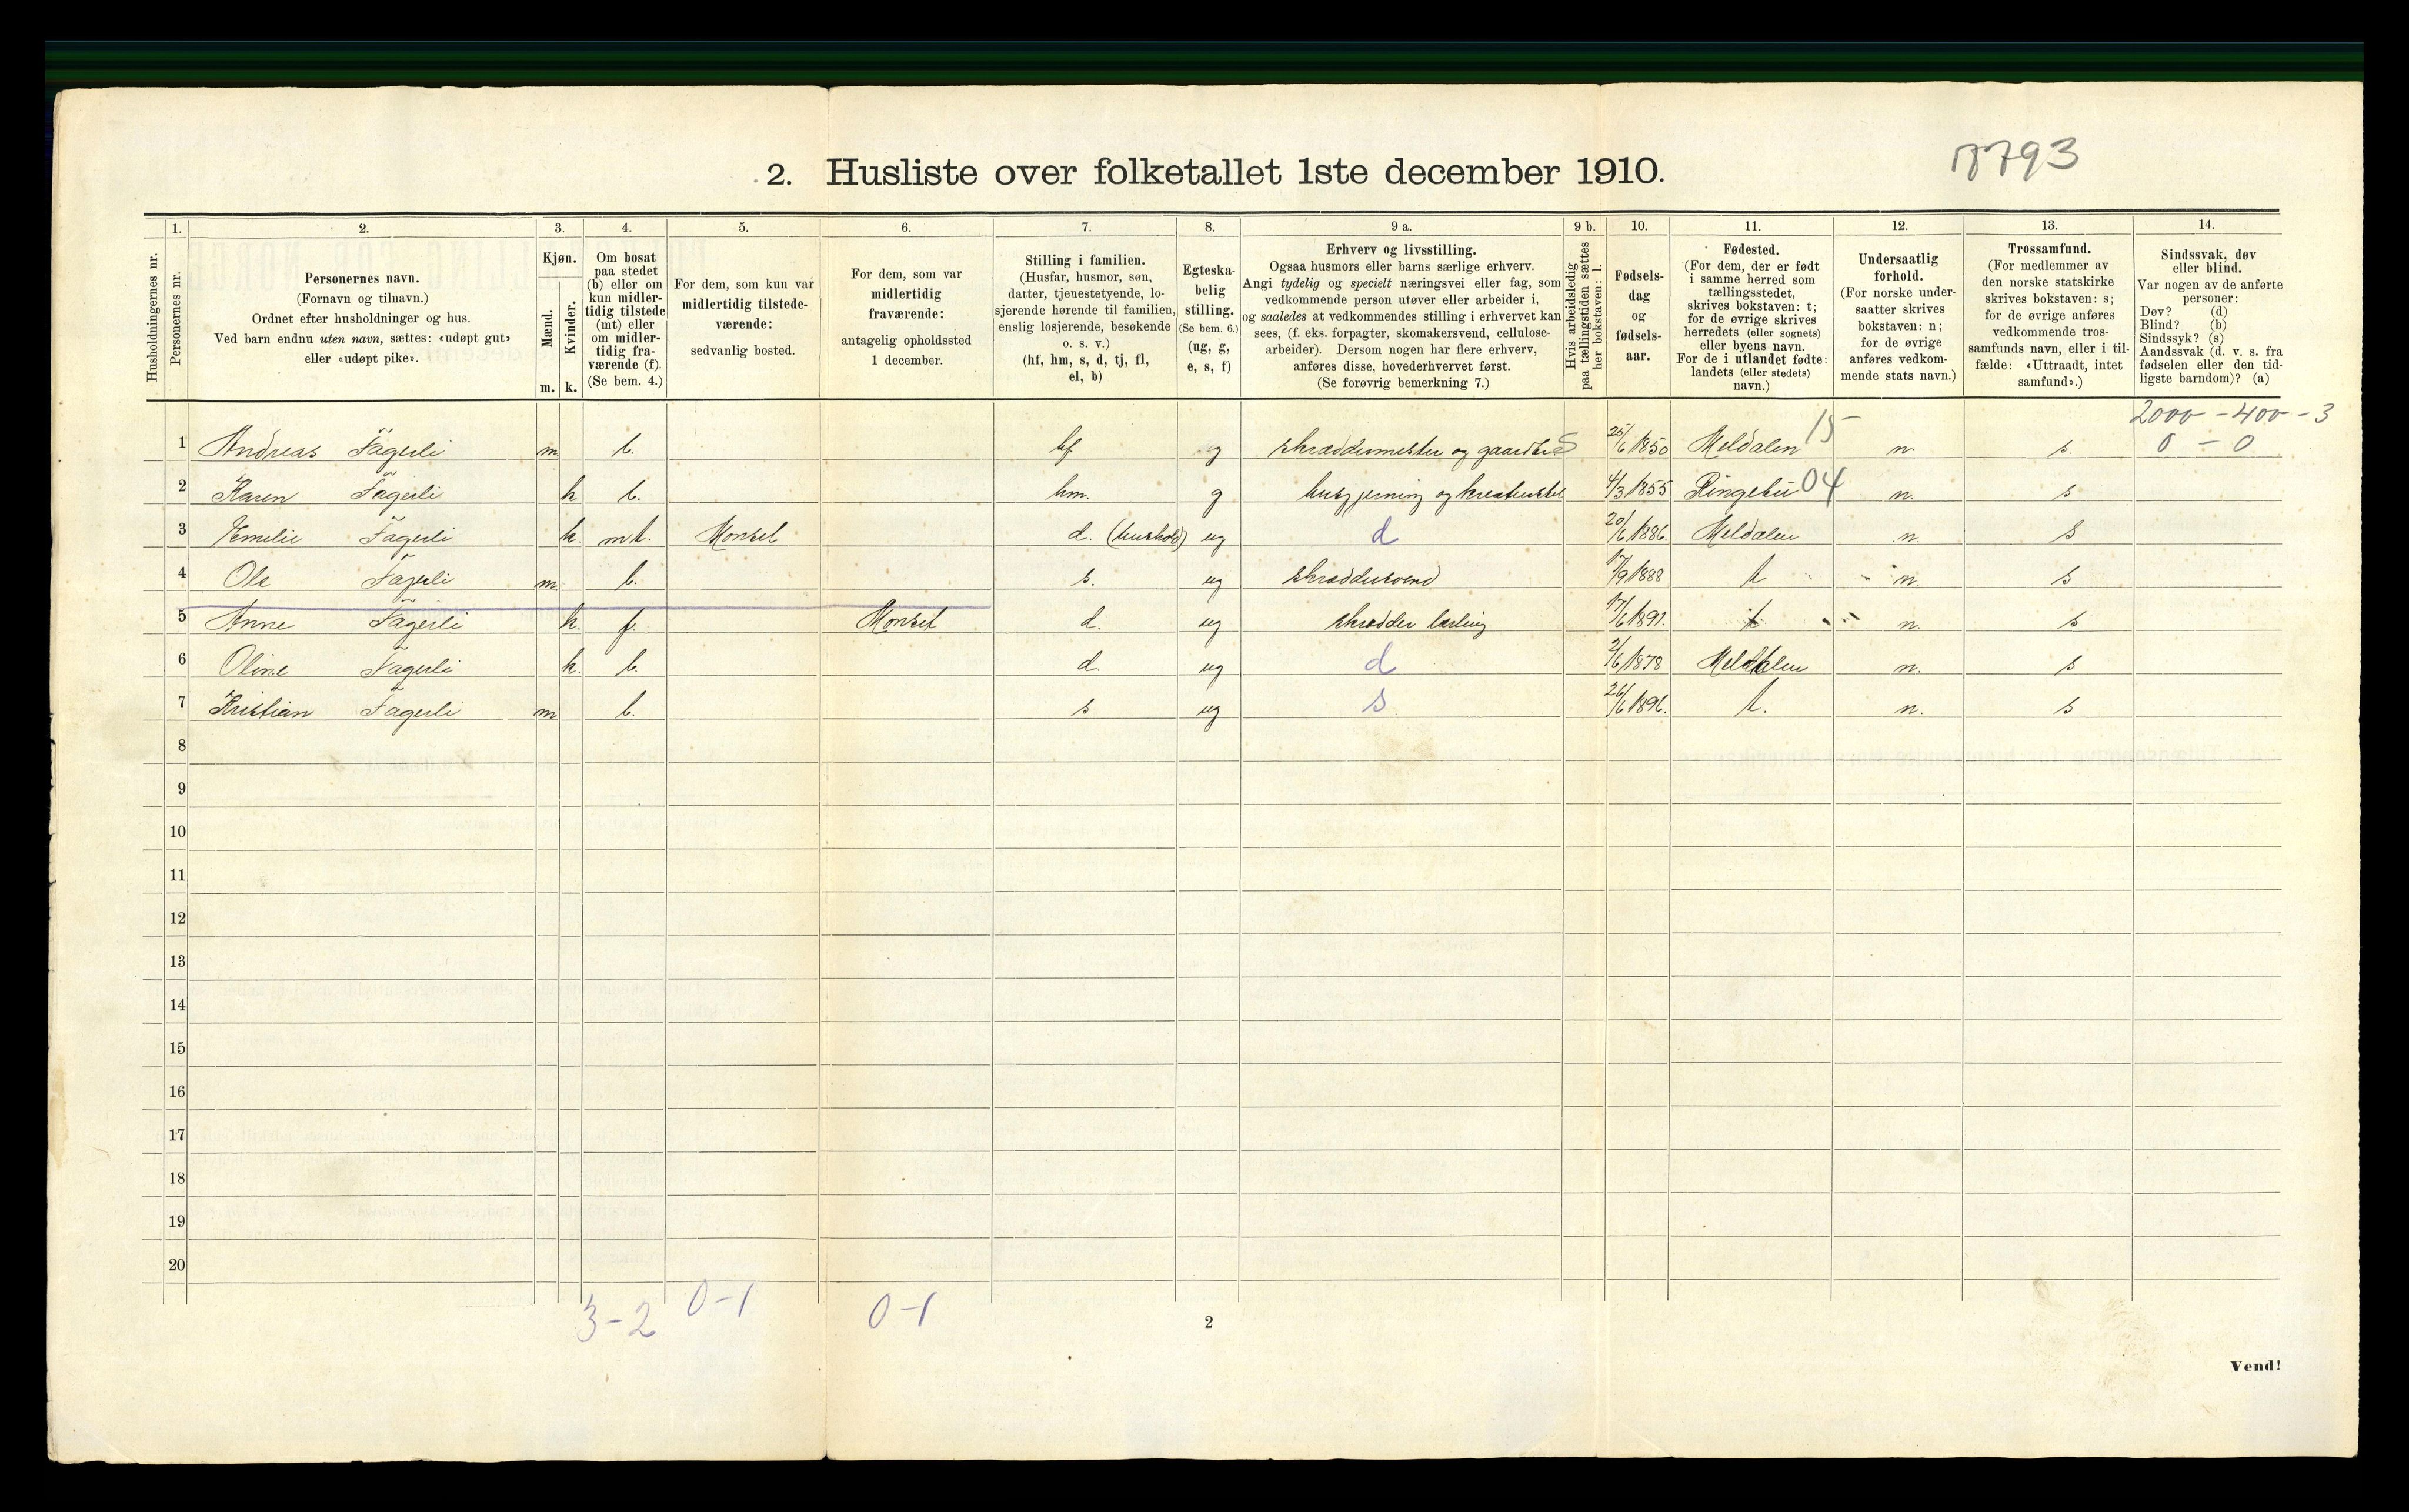 2. Husliste over folketallet 1ste december 1910.
1. 2. 3. 4. 5. 6. 7. 8. 9 a. 9 b. 10. 11. 12. 13. 14.
Husholdningernes nr.
Personernes nr.
Personernes navn.
(Fornavn og tilnavn.)
Ordnet efter husholdninger og hus.
Ved barn endnu uten navn, sættes: «udøpt gut»
eller «udøpt pike».
Kjøn.
Mænd.
Kvinder.
m. k.
Om bosat
paa stedet
(b) eller om
kun midler-
tidig tilstede
(mt) eller
om midler-
tidig fra-
værende (f).
(Se bem. 4.)
For dem, som kun var
midlertidig tilstede-
værende:
sedvanlig bosted.
For dem, som var
midlertidig
fraværende:
antagelig opholdssted
1 december.
Stilling i familien.
(Husfar, husmor, søn,
datter, tjenestetyende, lo-
sjerende hørende til familien,
enslig losjerende, besøkende
o. s. v.)
(hf, hm, s, d, tj, fl,
el, b)
Egteska-
belig
stilling.
(Se bem. 6.)
(ug, g,
e, s, f)
Erhverv og livsstilling.
Ogsaa husmors eller barns særlige erhverv.
Angi tydelig og specielt næringsvei eller fag, som
vedkommende person utøver eller arbeider i,
og saaledes at vedkommendes stilling i erhvervet kan
sees, (f. eks. forpagter, skomakersvend, cellulose-
arbeider). Dersom nogen har flere erhverv,
anføres disse, hovederhvervet først.
(Se forøvrig bemerkning 7.)
Hvis arbeidsledig
paa tællingstiden sættes
her bokstaven: l.
Fødsels-
dag
og
fødsels-
aar.
Fødested.
(For dem, der er født
i samme herred som
tællingsstedet,
skrives bokstaven: t;
for de øvrige skrives
herredets (eller sognets)
eller byens navn.
For de i utlandet fødte:
landets (eller stedets)
navn.)
Undersaatlig
forhold.
(For norske under-
saatter skrives
bokstaven: n;
for de øvrige
anføres vedkom-
mende stats navn.)
Trossamfund.
(For medlemmer av
den norske statskirke
skrives bokstaven: s;
for de øvrige anføres
vedkommende tros-
samfunds navn, eller i til-
fælde: «Uttraadt, intet
samfund».)
Sindssvak, døv
eller blind.
Var nogen av de anførte
personer:
Døv? (d)
Blind? (b)
Sindssyk? (s)
Aandssvak (d. v. s. fra
fødselen eller den tid-
ligste barndom)? (a)
2000 - 400 - 3
1 Andreas Fagerli m. b. hf g skræddermester og gaardbr S 25/6 1850 Meldalen 15 n. s. 0 - 0
2 Karen Fagerli k b. hm. g husgjerning og kreaturstel 4/3 1855 Ringebu 04 n. s
3 Emilie Fagerli k. mt. Monset d. (hushold) ug d 20/6 1886. Meldalen n. s
4 Ole Fagerli m. b. s. ug skræddersvend 17/9 1888 t n. s
5 Anne Fagerli k. f. Monset d. ug skrædder lærling 17/6 1891. t n. s
6 Oline Fagerli k. b. d. ug d 2/6 1878 Meldalen n. s
7 Kristian Fagerli m b. s ug s 26/6 1896. t. n. s
8
9
10
11
12
13
14
15
16
17
18
19
20
3-2 0-1 0-1
2
Vend!